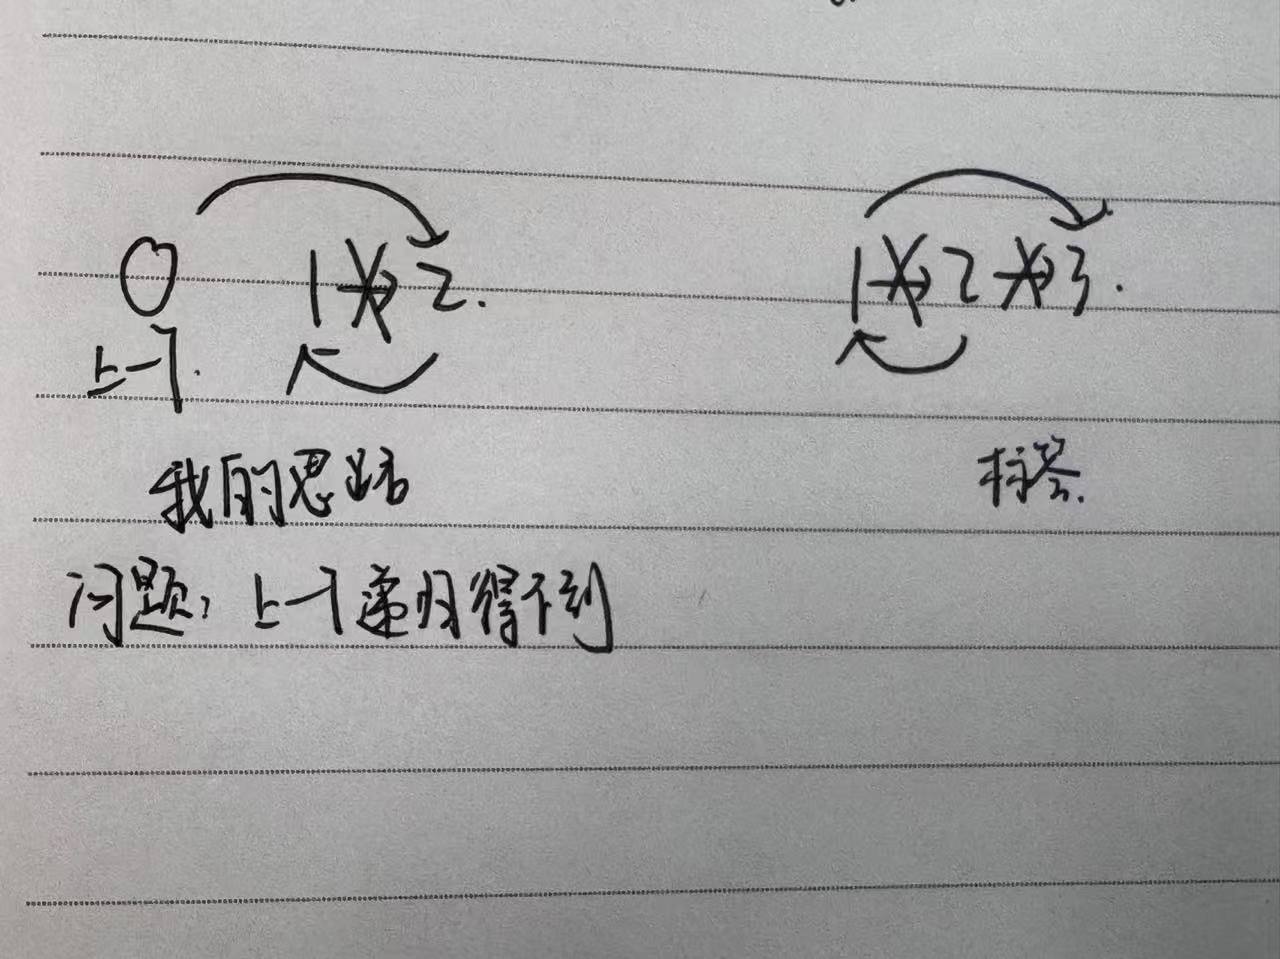 0 1→2.
1→2→3.
上一个.
我的思路
标答.
问题：上一个递归得不到